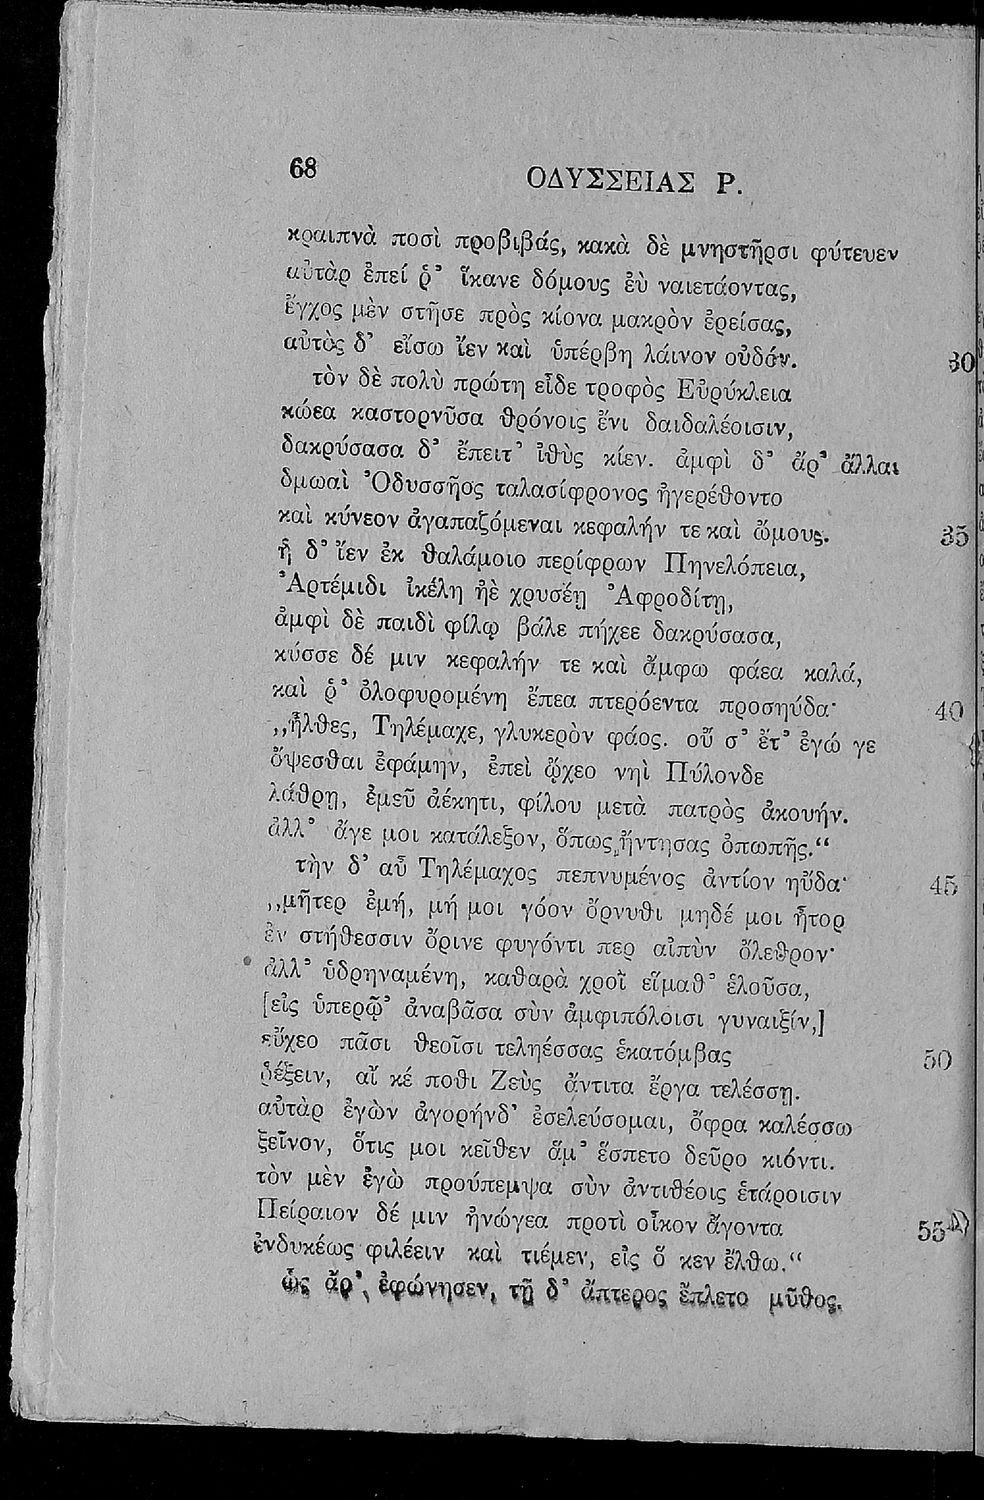 68
ΟΔΥΣΣΕΙΑΣ Ρ.
κραιπνὰ ποσὶ προβιβάς, κακὰ δὲ μνηστῆρσι φύτευεν
αὐτὰρ ἐπεί ῥ᾽ ἵκανε δόμους ἐὺ ναιετάοντας,
ἔγχος μὲν στῆσε πρὸς κίονα μακρὸν ἐρείσας,
αὐτὸς δ᾽ εἴσω ἴεν καὶ ὑπέρβη λάινον οὐδόν. 30
τὸν δὲ πολὺ πρώτη εἶδε τροφὸς Εὐρύκλεια
κώεα καστορνῦσα θρόνοις ἔνι δαιδαλέοισιν,
δακρύσασα δ᾽ ἔπειτ᾽ ἰθὺς κίεν. ἀμφὶ δ᾽ ἄρ᾽ ἄλλαι
δμωαὶ Ὀδυσσῆος ταλασίφρονος ἠγερέθοντο
καὶ κύνεον ἀγαπαζόμεναι κεφαλήν τε καὶ ὤμους. 35
ἡ δ᾽ ἴεν ἐκ θαλάμοιο περίφρων Πηνελόπεια,
Ἀρτέμιδι ἰκέλη ἠὲ χρυσέῃ Ἀφροδίτῃ,
ἀμφὶ δὲ παιδὶ φίλῳ βάλε πήχεε δακρύσασα,
κύσσε δέ μιν κεφαλήν τε καὶ ἄμφω φάεα καλά,
καὶ ῥ᾽ ὀλοφυρομένη ἔπεα πτερόεντα προσηύδα· 40
„ἦλθες, Τηλέμαχε, γλυκερὸν φάος. οὔ σ᾽ ἔτ᾽ ἐγώ γε
ὄψεσθαι ἐφάμην, ἐπεὶ ᾤχεο νηὶ Πύλονδε
λάθρῃ, ἐμεῦ ἀέκητι, φίλου μετὰ πατρὸς ἀκουήν.
ἀλλ᾽ ἄγε μοι κατάλεξον, ὅπως ἤντησας ὀπωπῆς.“
τὴν δ᾽ αὖ Τηλέμαχος πεπνυμένος ἀντίον ηὔδα· 45
„μῆτερ ἐμή, μή μοι γόον ὄρνυθι μηδέ μοι ἦτορ
ἐν στήθεσσιν ὄρινε φυγόντι περ αἰπὺν ὄλεθρον·
ἀλλ᾽ ὑδρηναμένη, καθαρὰ χροῒ εἵμαθ᾽ ἑλοῦσα,
[εἰς ὑπερῷ᾽ ἀναβᾶσα σὺν ἀμφιπόλοισι γυναιξίν,]
εὔχεο πᾶσι θεοῖσι τεληέσσας ἑκατόμβας 50
ῥέξειν, αἴ κέ ποθι Ζεὺς ἄντιτα ἔργα τελέσσῃ.
αὐτὰρ ἐγὼν ἀγορήνδ᾽ ἐσελεύσομαι, ὄφρα καλέσσω
ξεῖνον, ὅτις μοι κεῖθεν ἅμ᾽ ἕσπετο δεῦρο κιόντι.
τὸν μὲν ἐγὼ προύπεμψα σὺν ἀντιθέοις ἑτάροισιν
Πείραιον δέ μιν ἠνώγεα προτὶ οἶκον ἄγοντα 55
ἐνδυκέως φιλέειν καὶ τιέμεν, εἰς ὅ κεν ἔλθω.“
ὣς ἄρ᾽ ἐφώνησεν, τῇ δ᾽ ἄπτερος ἔπλετο μῦθος.